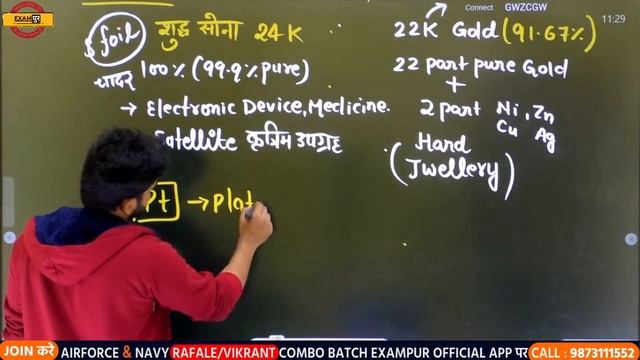 EXAMपुर
Connect GWZCGW
11:29
foil
चादर
शुद्ध सोना 24K
100% (99.9% pure)
→ Electronic Device, Medicine.
Satellite कृत्रिम उपग्रह
Pt → Plat
22K Gold (91.67%)
22 part pure Gold
+
2 part Ni, Zn
Cu Ag
Hard
(Jwellery)
JOIN करे AIRFORCE & NAVY RAFALE/VIKRANT COMBO BATCH EXAMPUR OFFICIAL APP पर CALL : 9873111552